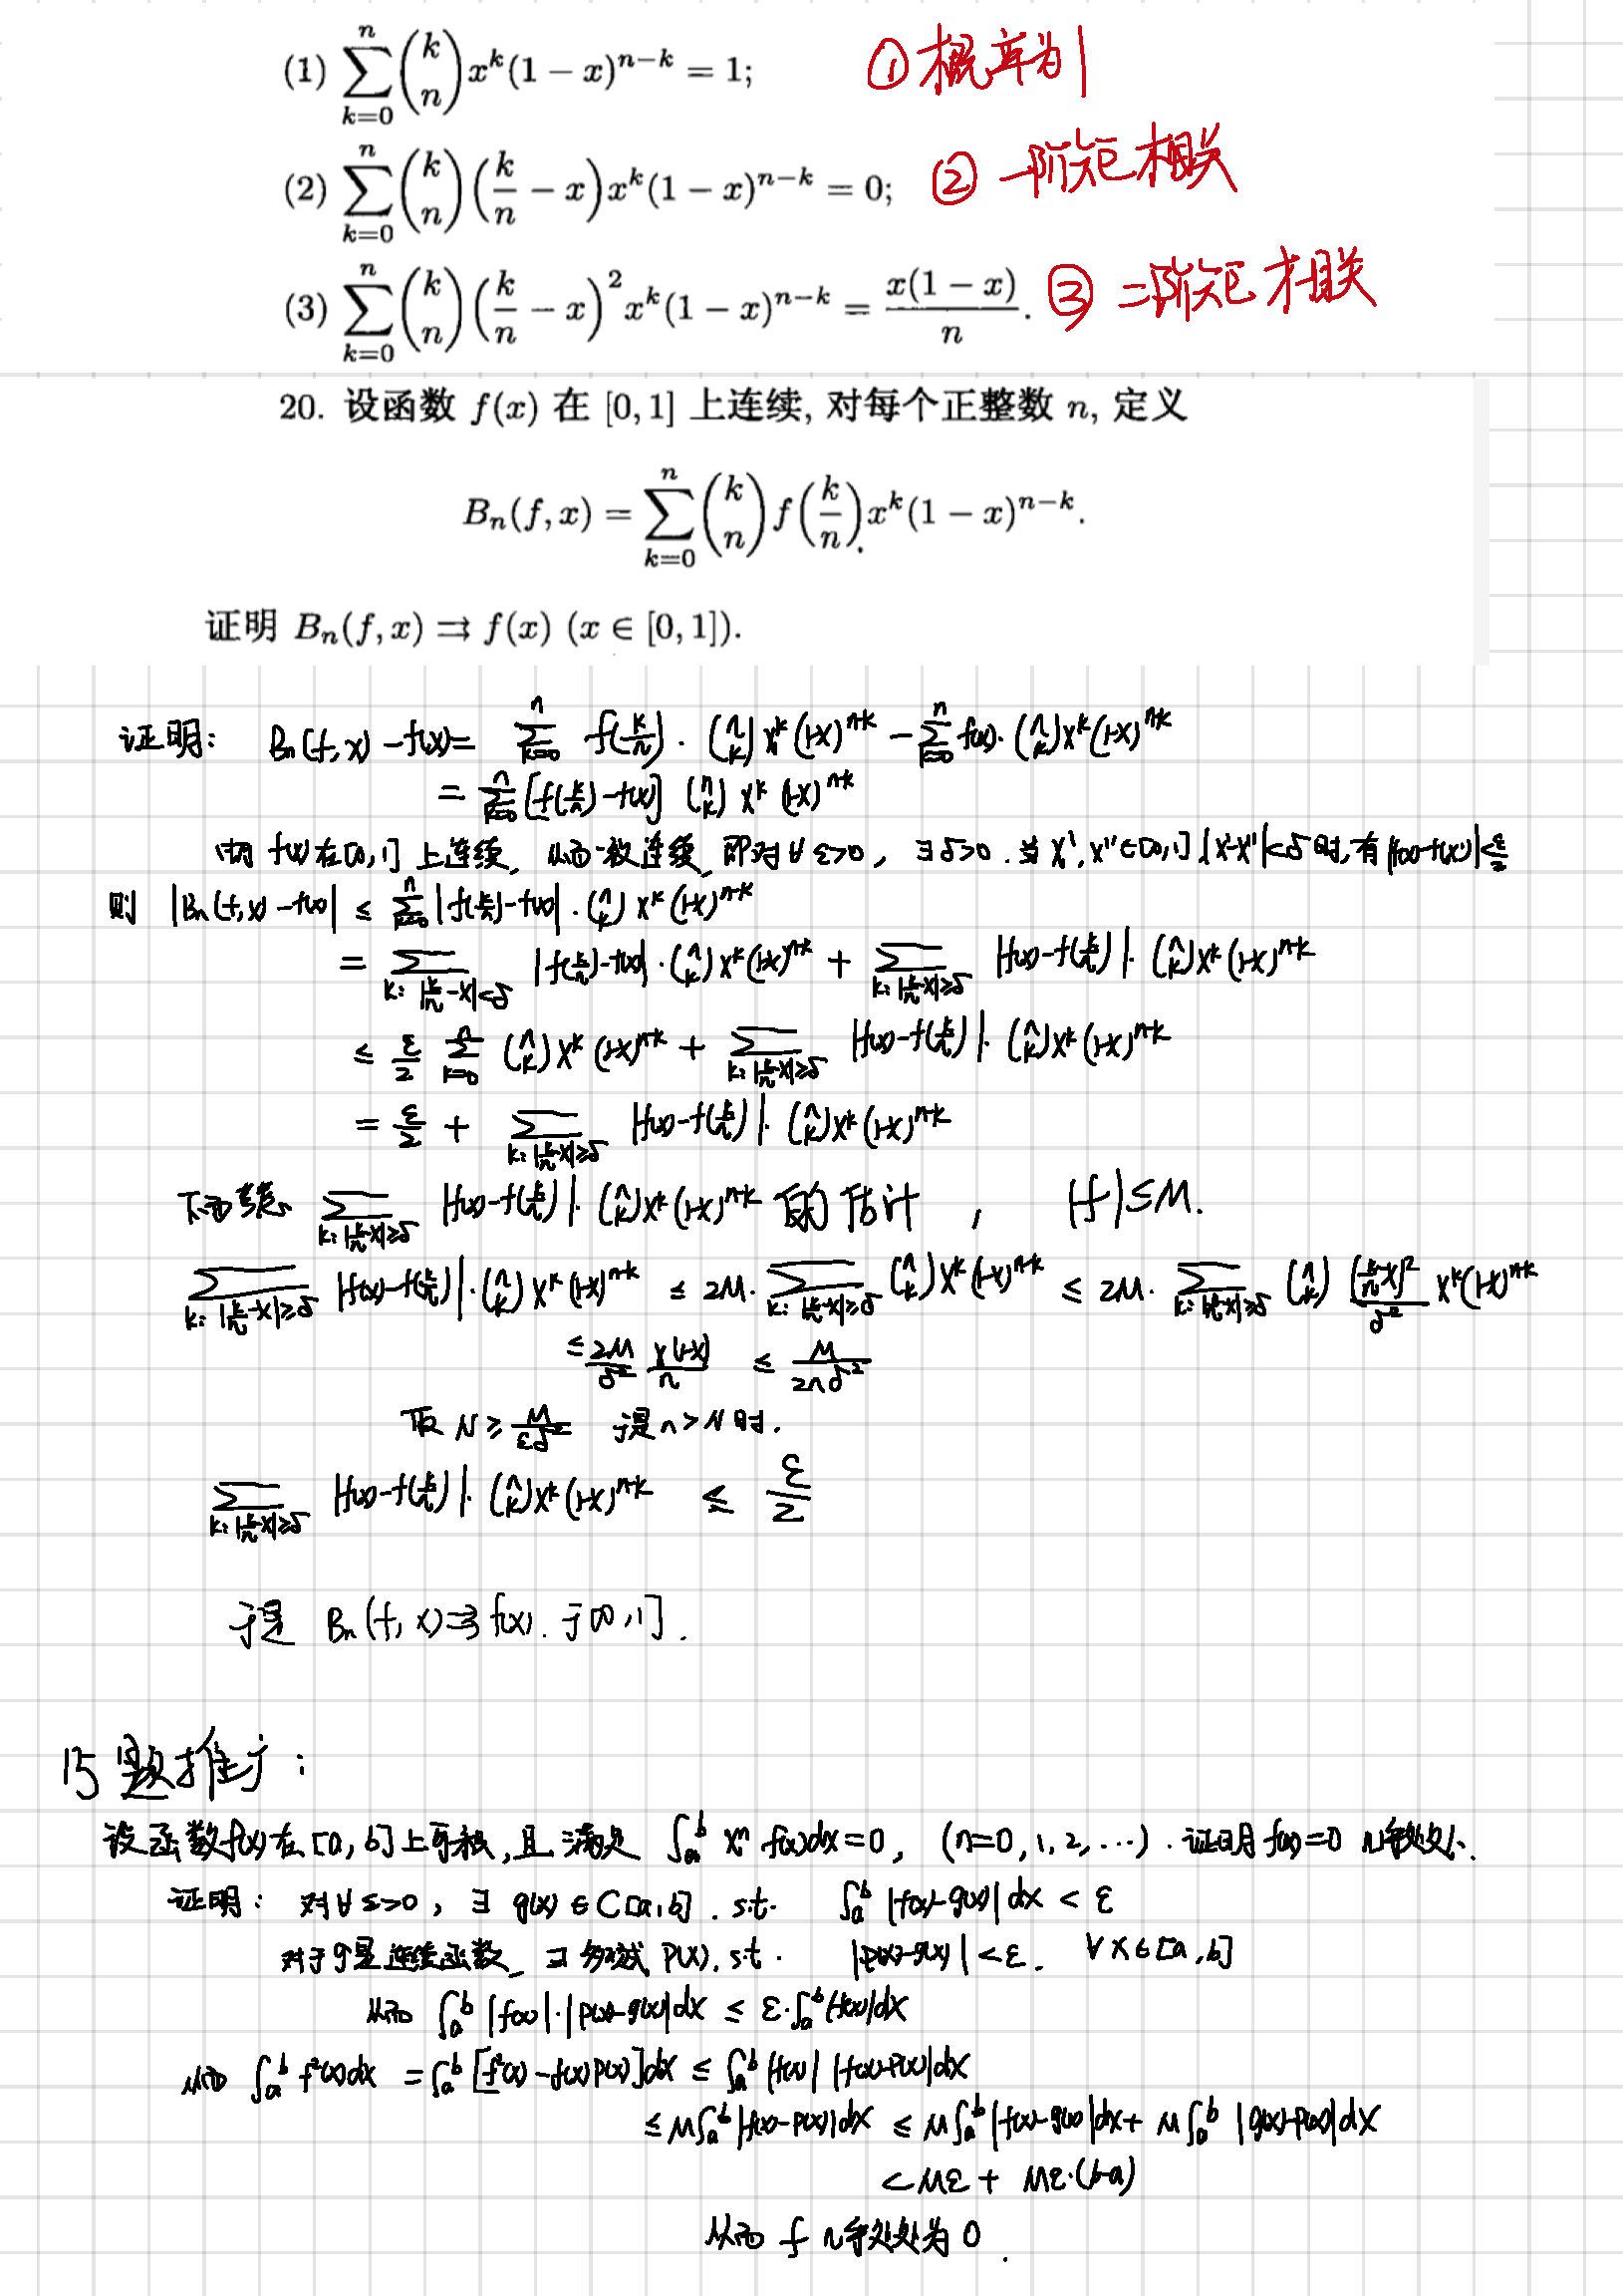 (1) \sum_{k=0}^{n} \binom{k}{n} x^k (1-x)^{n-k} = 1; ① 概率为1
(2) \sum_{k=0}^{n} \binom{k}{n} \left(\frac{k}{n} - x\right) x^k (1-x)^{n-k} = 0; ② 一阶矩相关
(3) \sum_{k=0}^{n} \binom{k}{n} \left(\frac{k}{n} - x\right)^2 x^k (1-x)^{n-k} = \frac{x(1-x)}{n}. ③ 二阶矩相关
20. 设函数 f(x) 在 [0,1] 上连续, 对每个正整数 n, 定义
B_n(f,x) = \sum_{k=0}^{n} \binom{k}{n} f\left(\frac{k}{n}\right) x^k (1-x)^{n-k}.
证明 B_n(f,x) ⇉ f(x) (x ∈ [0,1]).
证明: B_n(f,x) - f(x) = \sum_{k=0}^{n} f(\frac{k}{n}) · \binom{n}{k} x^k (1-x)^{n-k} - \sum_{k=0}^{n} f(x) · \binom{n}{k} x^k (1-x)^{n-k}
= \sum_{k=0}^{n} [f(\frac{k}{n}) - f(x)] \binom{n}{k} x^k (1-x)^{n-k}
f(x) 在 [0,1] 上连续, 从而一致连续, 即对 ∀ ε>0, ∃ δ>0. 当 x', x'' ∈ [0,1], |x'-x''|<δ 时, 有 |f(x')-f(x'')|<\frac{ε}{2}
则 |B_n(f,x) - f(x)| ≤ \sum_{k=0}^{n} |f(\frac{k}{n}) - f(x)| · \binom{n}{k} x^k (1-x)^{n-k}
= \sum_{k: |\frac{k}{n}-x|<δ} |f(\frac{k}{n}) - f(x)| · \binom{n}{k} x^k (1-x)^{n-k} + \sum_{k: |\frac{k}{n}-x|≥δ} |f(x) - f(\frac{k}{n})| · \binom{n}{k} x^k (1-x)^{n-k}
≤ \frac{ε}{2} \sum_{k=0}^{n} \binom{n}{k} x^k (1-x)^{n-k} + \sum_{k: |\frac{k}{n}-x|≥δ} |f(x) - f(\frac{k}{n})| · \binom{n}{k} x^k (1-x)^{n-k}
= \frac{ε}{2} + \sum_{k: |\frac{k}{n}-x|≥δ} |f(x) - f(\frac{k}{n})| · \binom{n}{k} x^k (1-x)^{n-k}
下面考虑 \sum_{k: |\frac{k}{n}-x|≥δ} |f(x) - f(\frac{k}{n})| · \binom{n}{k} x^k (1-x)^{n-k} 的估计, |f| ≤ M.
\sum_{k: |\frac{k}{n}-x|≥δ} |f(x) - f(\frac{k}{n})| · \binom{n}{k} x^k (1-x)^{n-k} ≤ 2M · \sum_{k: |\frac{k}{n}-x|≥δ} \binom{n}{k} x^k (1-x)^{n-k} ≤ 2M · \sum_{k: |\frac{k}{n}-x|≥δ} \binom{n}{k} \frac{(\frac{k}{n}-x)^2}{δ^2} x^k (1-x)^{n-k}
≤ \frac{2M}{δ^2} \frac{x(1-x)}{n} ≤ \frac{M}{2nδ^2}
取 N ≥ \frac{M}{εδ^2} 于是 n > N 时.
\sum_{k: |\frac{k}{n}-x|≥δ} |f(x) - f(\frac{k}{n})| · \binom{n}{k} x^k (1-x)^{n-k} ≤ \frac{ε}{2}
于是 B_n(f,x) ⇉ f(x). 于 [0,1].
15题推广:
设函数 f(x) 在 [a,b] 上可积, 且满足 \int_a^b x^n f(x) dx = 0, (n=0,1,2,…). 证明 f(x)=0 几乎处处.
证明: 对 ∀ ε>0, ∃ g(x) ∈ C[a,b]. s.t. \int_a^b |f(x)-g(x)| dx < ε
对于g是连续函数, ∃ 多项式 P(x), s.t. |P(x)-g(x)| < ε. ∀ x ∈ [a,b]
从而 \int_a^b |f(x)| · |P(x)-g(x)| dx ≤ ε · \int_a^b |f(x)| dx
从而 \int_a^b f^2(x) dx = \int_a^b [f^2(x) - f(x)P(x)] dx ≤ \int_a^b |f(x)| |f(x)-P(x)| dx
≤ M \int_a^b |f(x)-P(x)| dx ≤ M \int_a^b |f(x)-g(x)| dx + M \int_a^b |g(x)-P(x)| dx
< Mε + Mε·(b-a)
从而 f 几乎处处为 0.